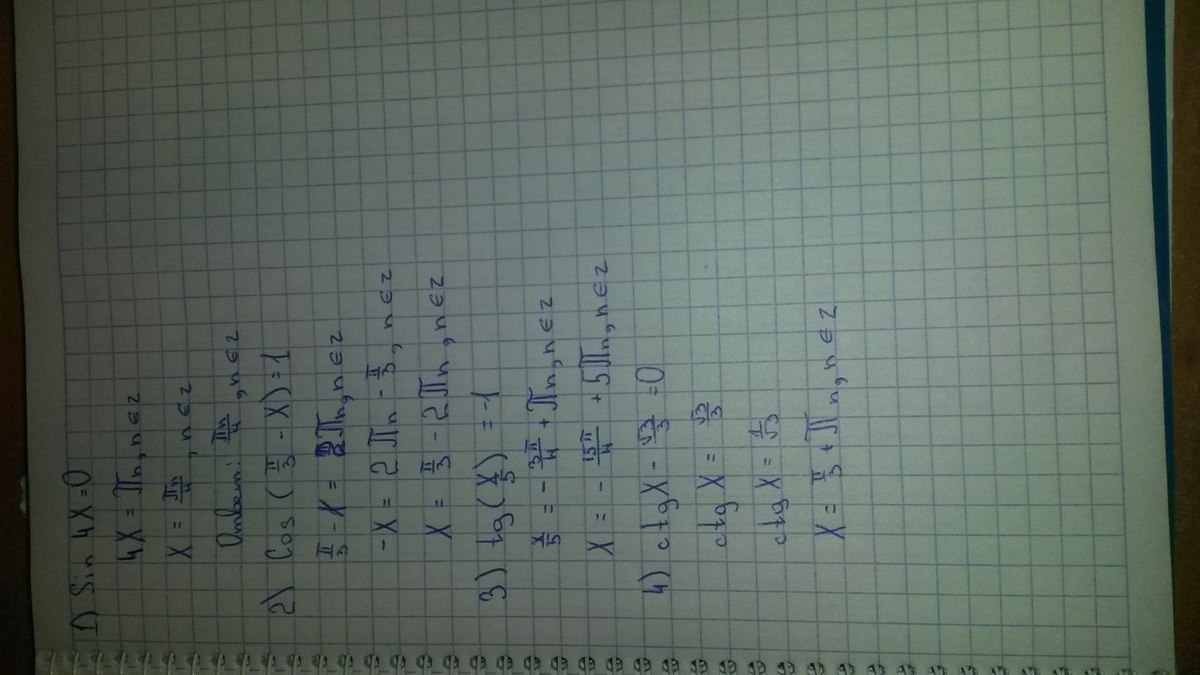 1) Sin 4X=0
4X = πn, n∈z
X = πn/4, n∈z
Ответ: πn/4, n∈z
2) Cos (π/3 - X) = 1
π/3 - X = 2πn, n∈z
-X = 2πn - π/3, n∈z
X = π/3 - 2πn, n∈z
3) tg(X/5) = -1
X/5 = - 3π/4 + πn, n∈z
X = - 15π/4 + 5πn, n∈z
4) ctgX - √3/3 = 0
ctgX = √3/3
ctgX = 1/√3
X = π/3 + πn, n∈z